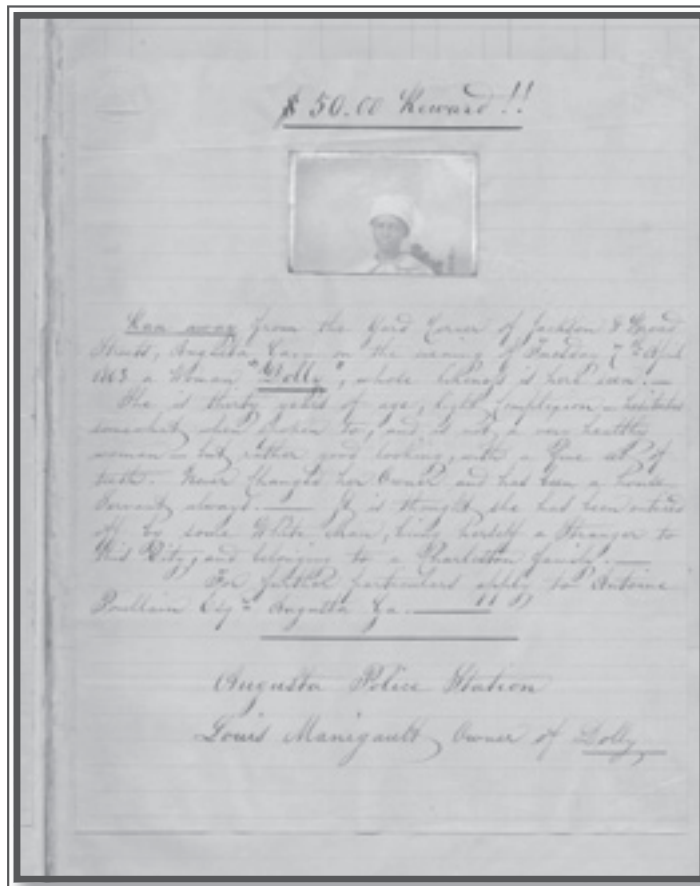 $ 50.00 Reward !!
Ran away from the Yard Corner of Jackson & Broad
Streets, Augusta Ga. on the evening of Tuesday 7th April
1863 a Woman "Dolly", whose likeness is here seen.—
She is thirty years of age, light Complexion – hesitates
somewhat when spoken to, and is not a very healthy
woman – but rather good looking, with a fine set of
teeth. Never changed her Owner and had been a house
Servant always.— It is thought she had been enticed
off by some White Man, being herself a Stranger to
this City, and belonging to a Charleston family.—
For further particulars apply to Antoine
Poullain Esqr Augusta Ga.—
Augusta Police Station
Louis Manigault, Owner of Dolly